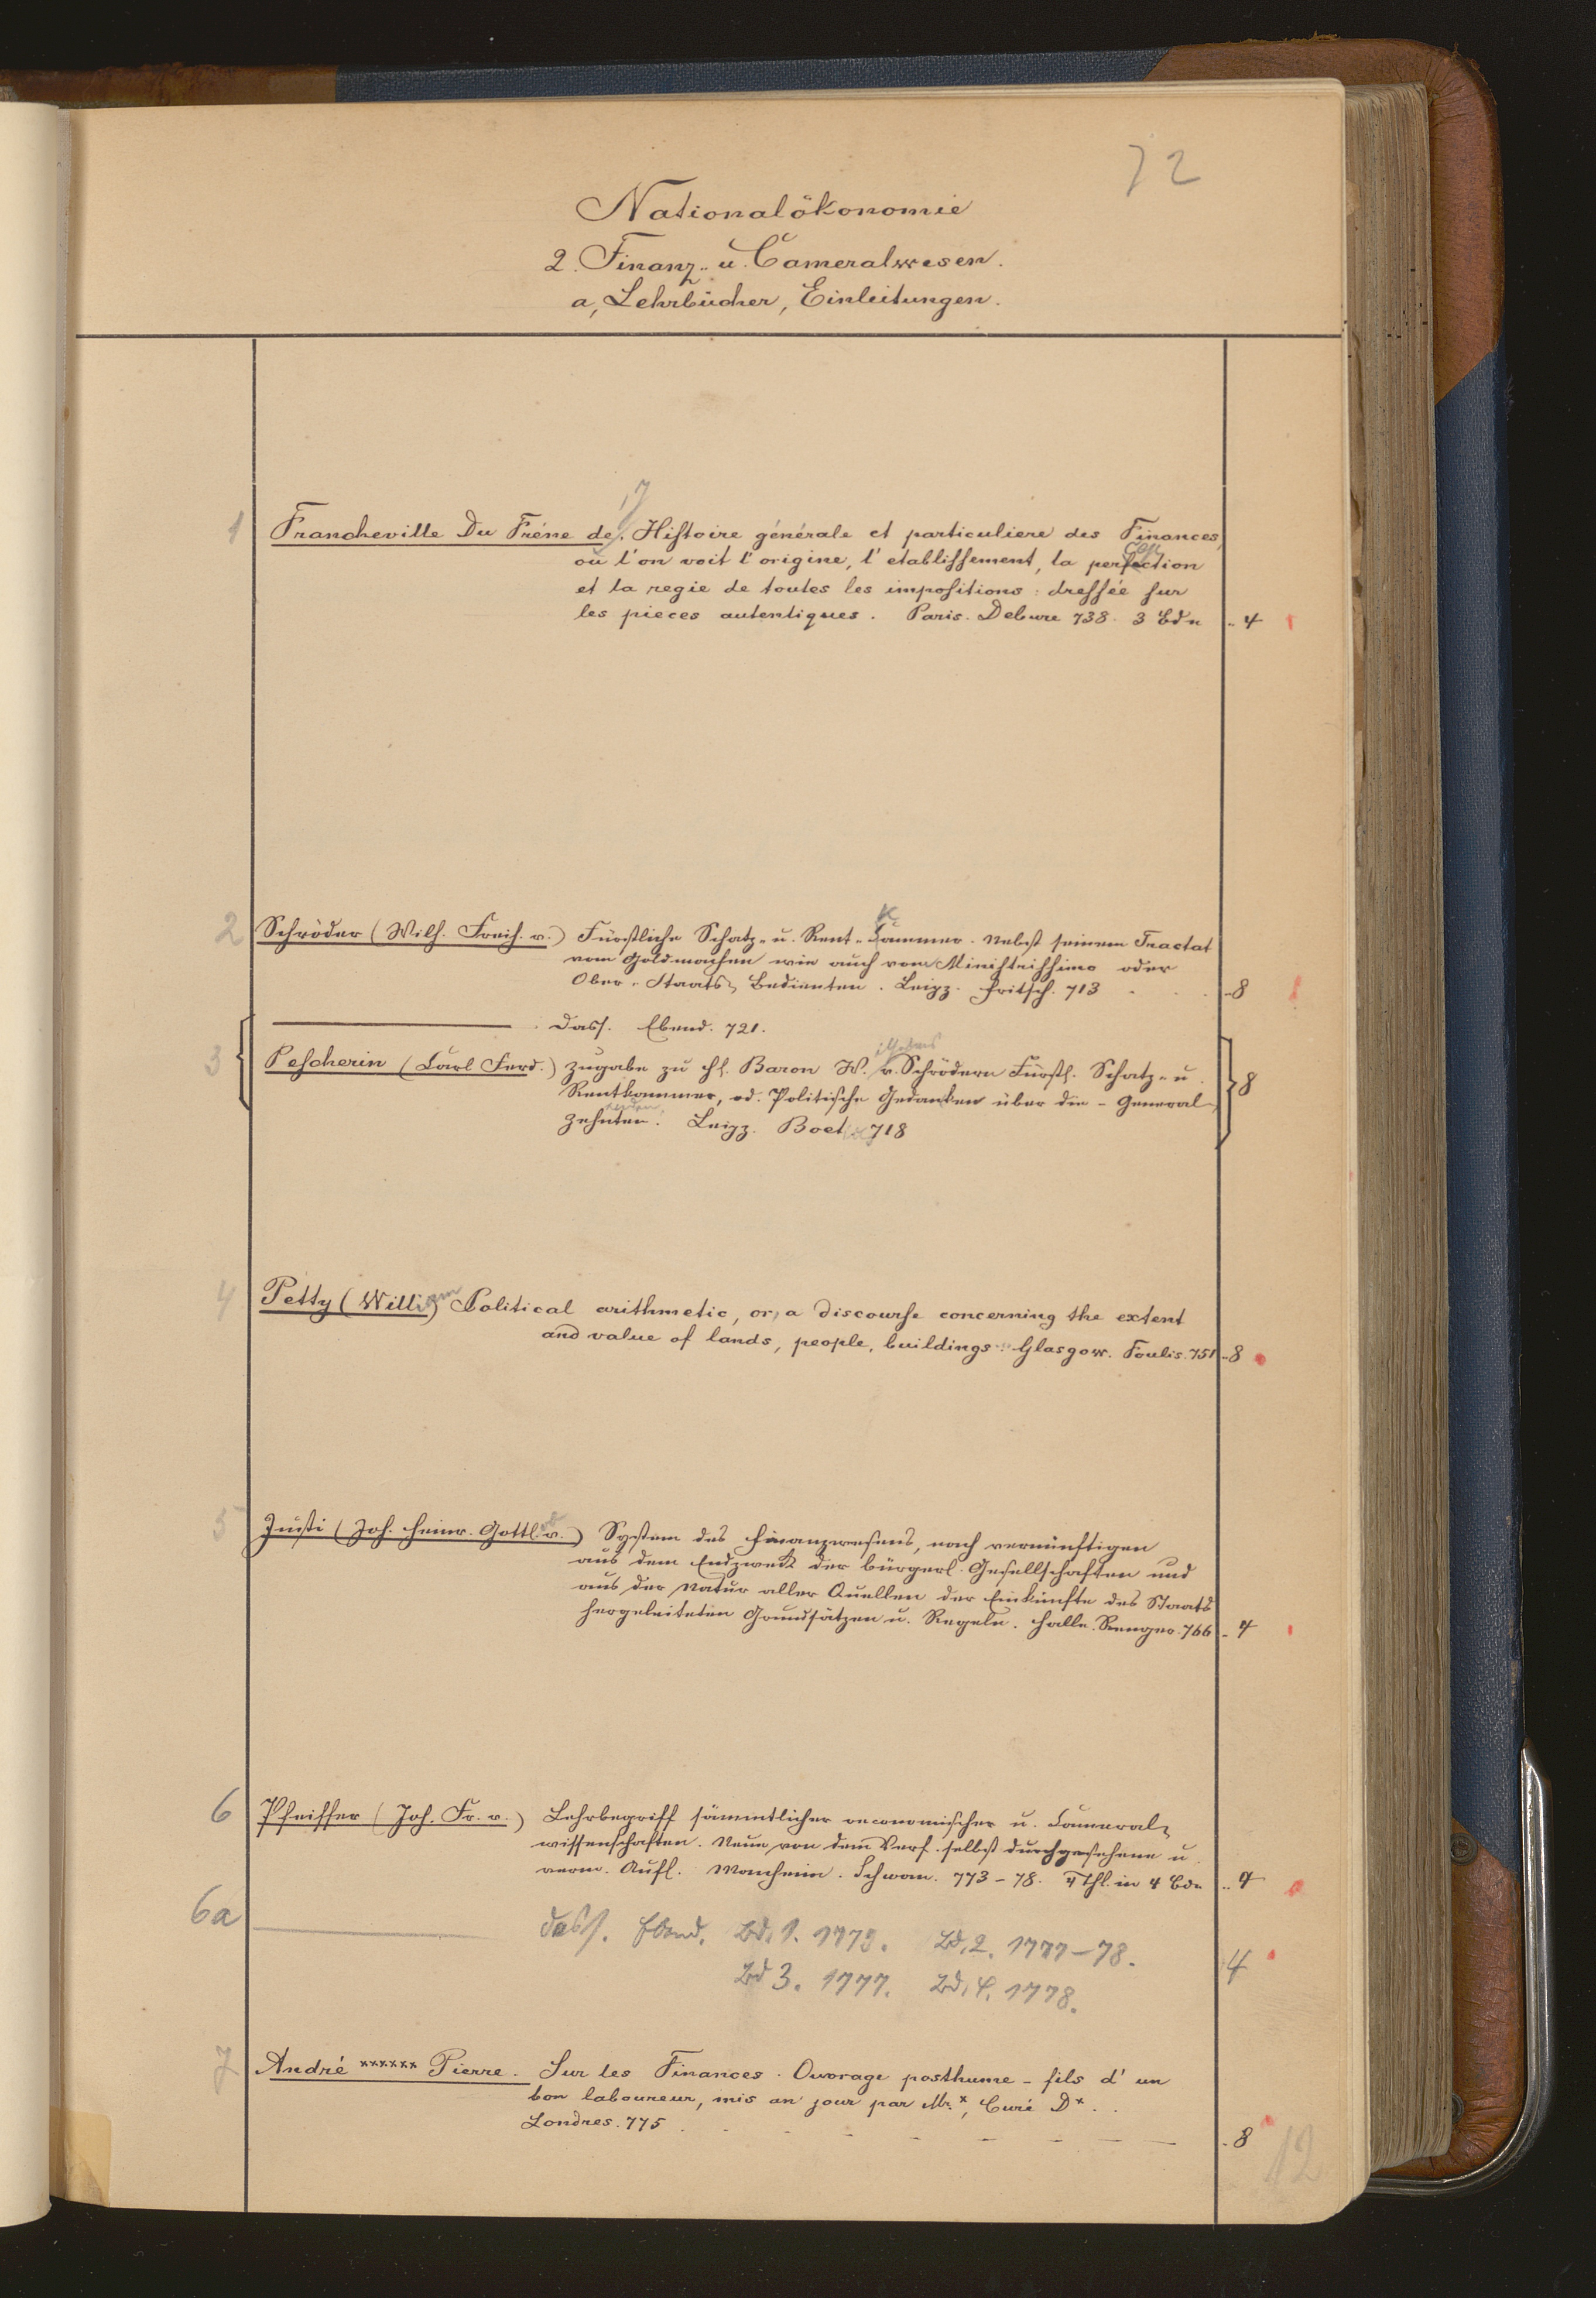 72
Nationalökonomie
2. Finanz- u. Cameralwesen.
a, Lehrbücher, Einleitungen.
1 Francheville Du Frêne de, J. Histoire générale et particuliere des Finances,
où l'on voit l'origine, l'etablissement, la perfection
et la regie de toutes les impositions: dressée sur
les pieces autentiques. Paris. Debure 738. 3 Bdn .. 4
2 Schröder (Wilh. Freih. v.) Fürstliche Schatz- u. Rent-Kammer. Nebst seinem Tractat
vom Goldmachen wie auch vom Ministrissimo oder
Ober-Staats-Bedienten. Leipz. Fritsch. 713 . . . -8
Dass. Ebend. 721.
3 Pescherin (Carl Ferd.) Zugabe zu H. Baron W. v. Schrödern Fürstl. Schatz- u.
Rentkammer, od. Politische Gedanken über die - General- 8
Zehnten. Leipz. Boet 718
4 Petty (William) Political arithmetic, or, a discourse concerning the extent
and value of lands, people, buildings. Glasgow. Foulis. 751 -8
5 Justi (Joh. Heinr. Gottl. v.) System des Finanzwesens, nach vernünftigen
aus dem Endzweck der bürgerl. Gesellschaften und
aus der Natur aller Quellen der Einkünfte des Staats
hergeleiteten Grundsätzen u. Regeln. Halle. Renger. 766 - 4
6 Pfeiffer (Joh. Fr. v.) Lehrbegriff sämmtlicher oeconomischer u. Cameral-
wissenschaften. Neue von dem Verf. selbst durchgesehene u.
verm. Aufl. Manheim. Schwan. 773-78. 4 Thl. in 4 Bdn .. 4
6a dass. Ebend. Bd. 1. 1773. Bd. 2. 1777-78.
Bd 3. 1777. Bd. 4. 1778. 4
7 André ****** Pierre. Sur les Finances. Ouvrage posthume - fils d'un
bon laboureur, mis au jour par Mr.*, Curé D*. .
Londres. 775 . - - - - - - - . 8
12